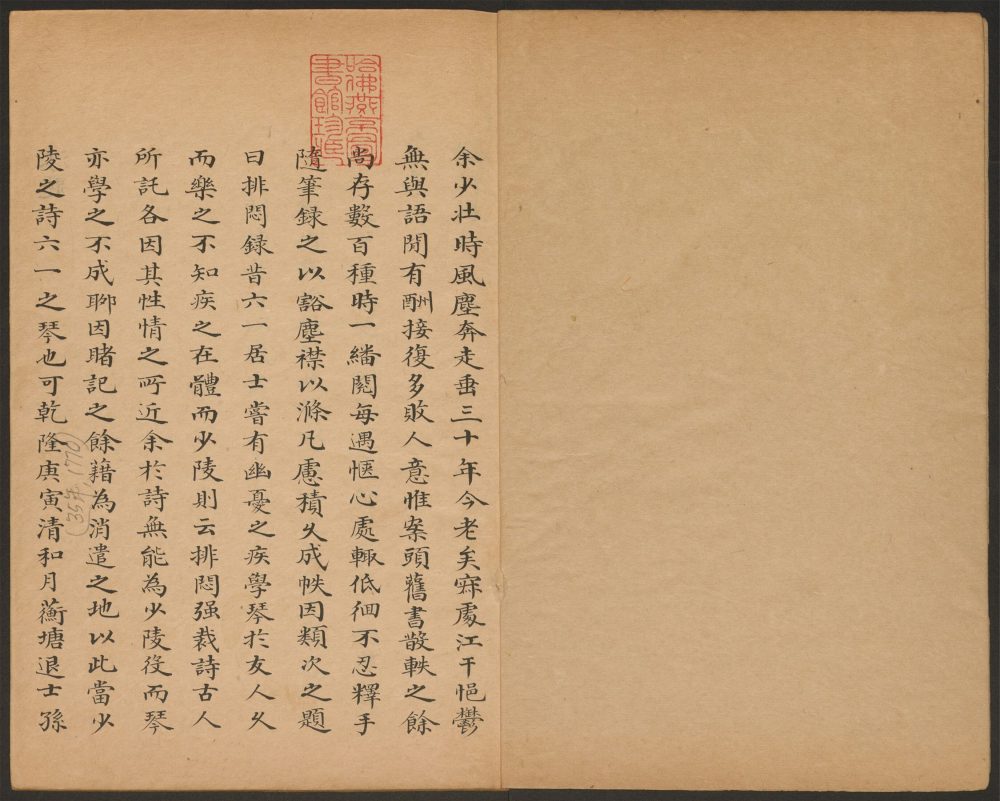 余少壯時風塵奔走垂三十年今老矣寂處江干悒鬱
無與語閒有酬接復多敗人意惟案頭舊書散軼之餘
尚存數百種時一繙閱每遇愜心處輒低徊不忍釋手
隨筆録之以豁塵襟以滌凡慮積久成帙因類次之題
曰排悶録昔六一居士嘗有幽憂之疾學琴於友人久
而樂之不知疾之在體而少陵則云排悶强裁詩古人
所託各因其性情之所近余於詩無能為少陵役而琴
亦學之不成聊因睹記之餘籍為消遣之地以此當少
陵之詩六一之琴也可乾隆庚寅清和月蘅塘退士孫
(35年, 1770)
哈佛燕京圖書館珍藏